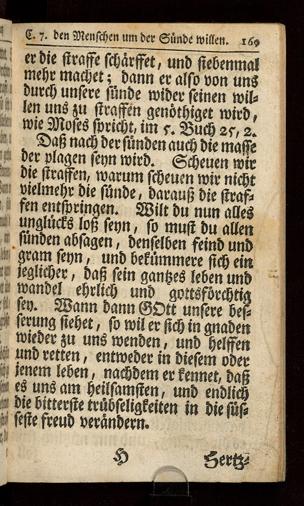 C. 7. den Menschen um der Sünde willen. 169
er die straffe schärffet, und siebenmal
mehr machet; dann er also von uns
durch unsere sünde wider seinen wil-
len uns zu straffen genöthiget wird,
wie Moses spricht, im 5. Buch 25, 2.
Daß nach der sünden auch die masse
der plagen seyn wird. Scheuen wir
die straffen, warum scheuen wir nicht
vielmehr die sünde, darauß die straf-
fen entspringen. Wilt du nun alles
unglücks loß seyn, so must du allen
sünden absagen, denselben feind und
gram seyn, und bekümmere sich ein
jeglicher, daß sein gantzes leben und
wandel ehrlich und gottsförchtig
sey. Wann dann GOtt unsere bes-
serung siehet, so wil er sich in gnaden
wieder zu uns wenden, und helffen
und retten, entweder in diesem oder
jenem leben, nachdem er kennet, daß
es uns am heilsamsten, und endlich
die bitterste trübseligkeiten in die süs-
seste freud verändern.
H Hertz-